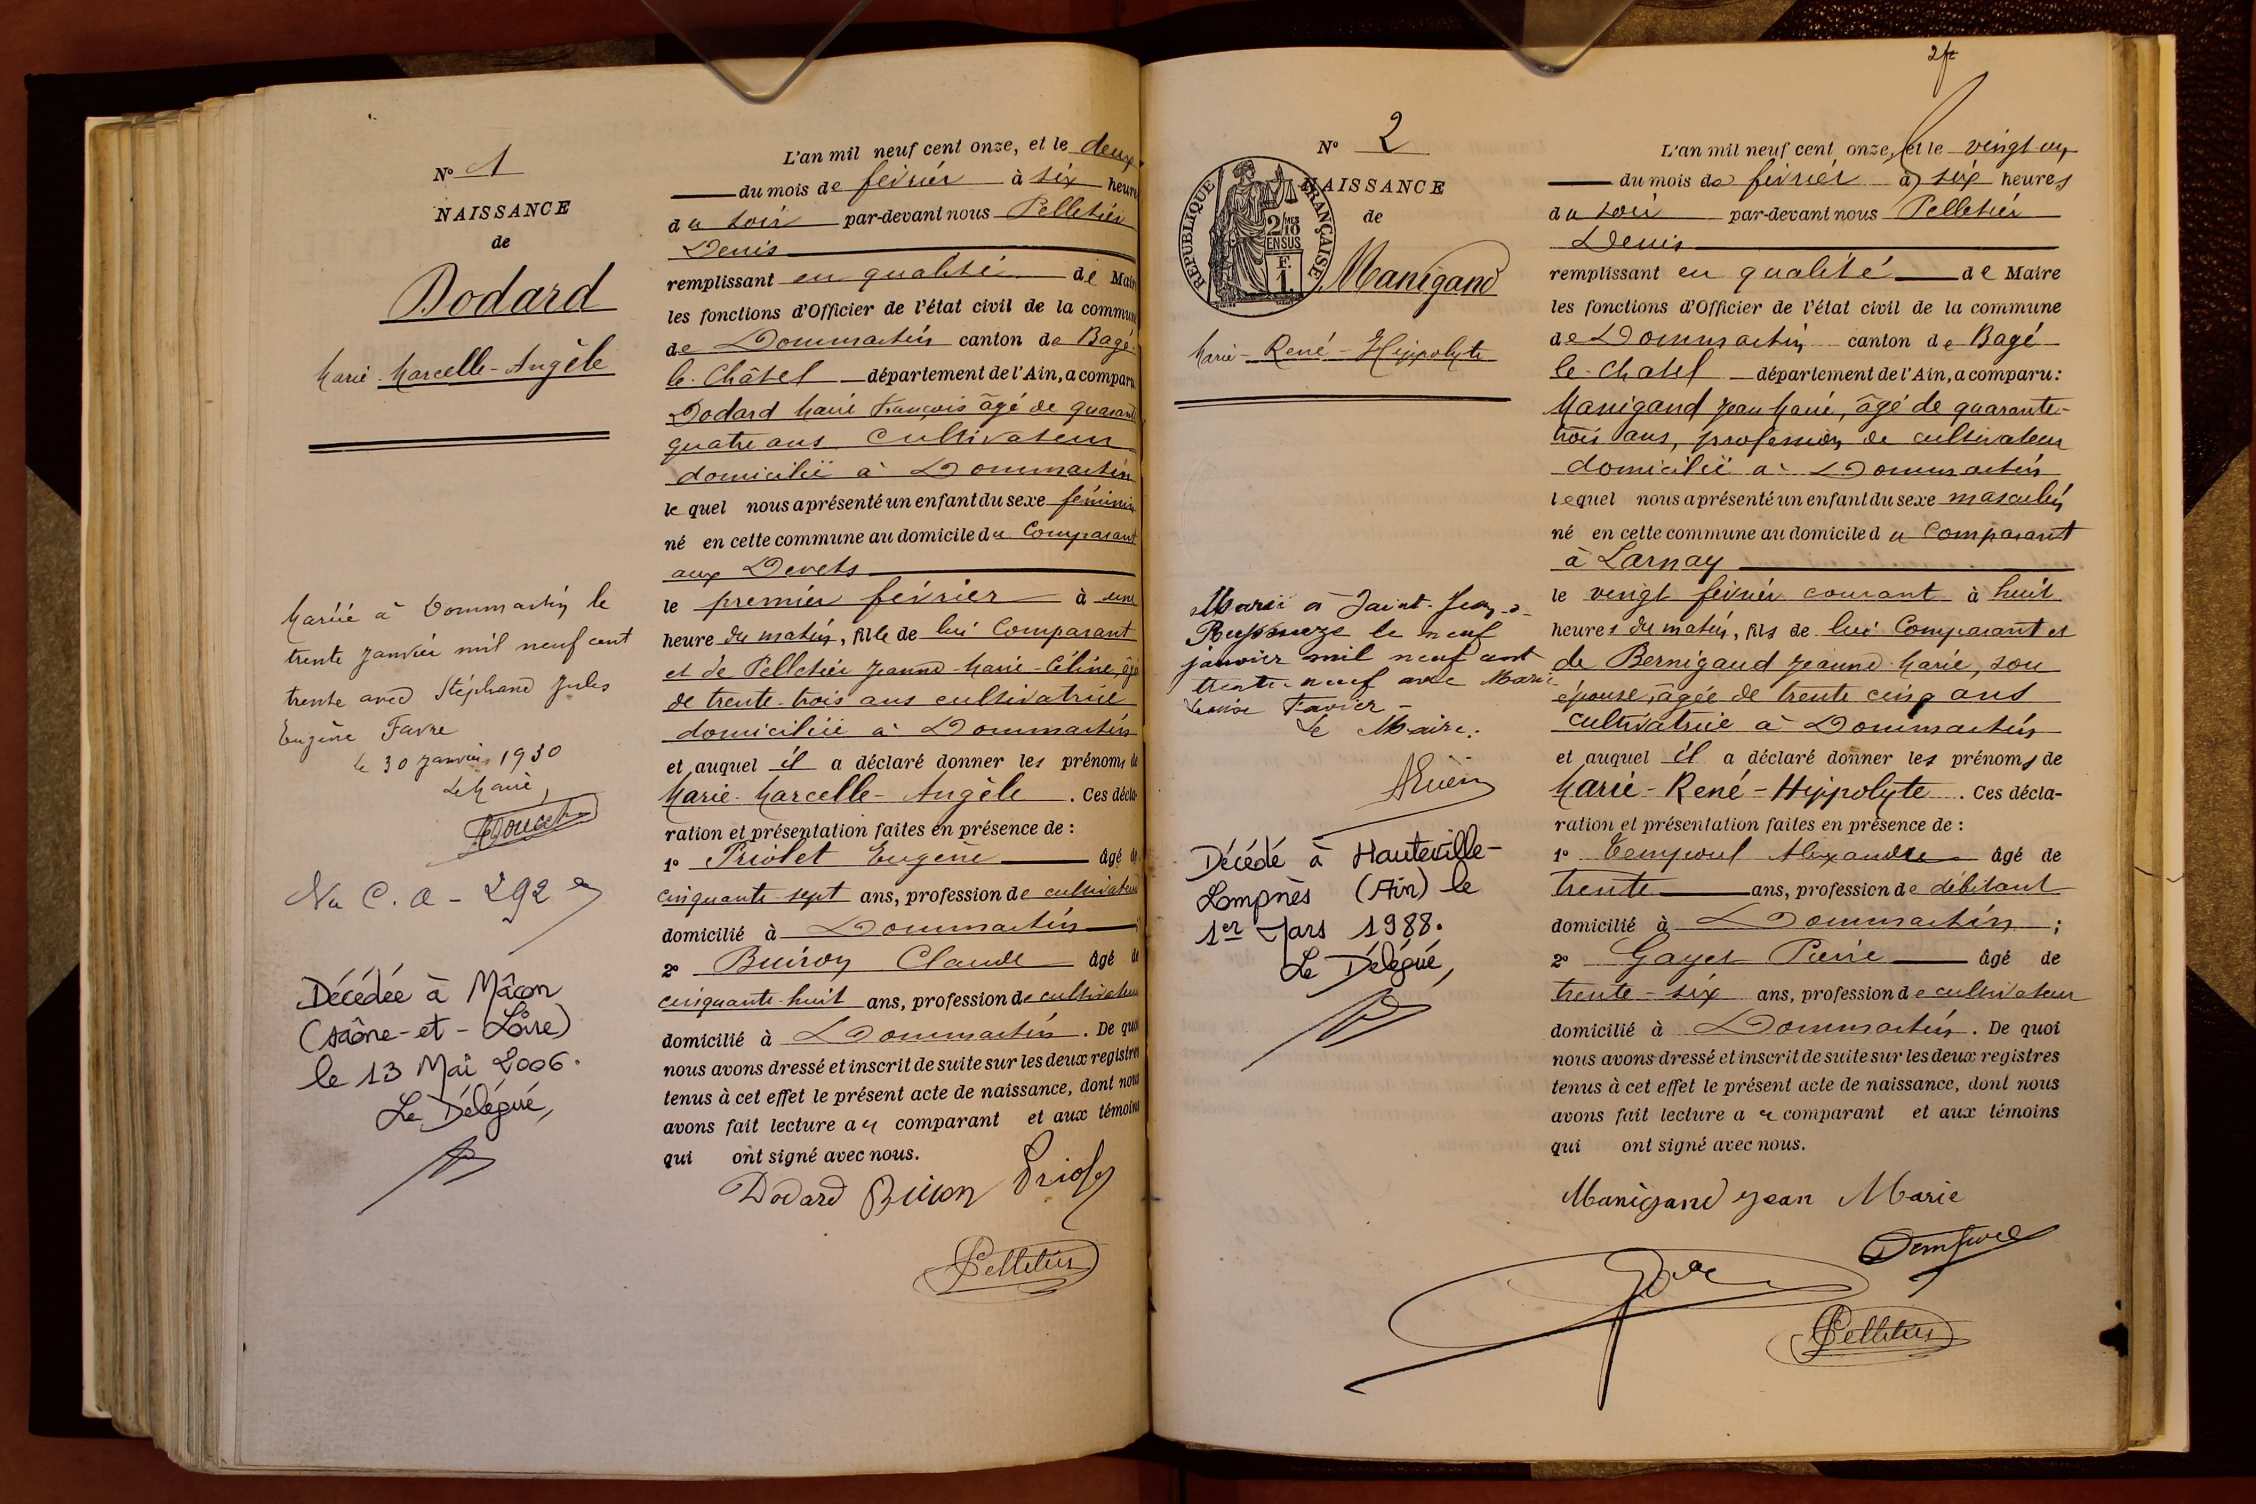 N° 1
NAISSANCE
de
Dodard
Marie-Marcelle-Angèle
Mariée à Dommartin le
trente janvier mil neuf cent
trente avec Stéphane Jules
Eugène Favre
le 30 janvier 1930
Le Maire,
Décédée à Mâcon
(Saône-et-Loire)
le 13 Mai 2006.
Le Délégué,
L'an mil neuf cent onze, et le deux
du mois de février à six heures
du soir par-devant nous Pelletier
Denis
remplissant en qualité de Maire
les fonctions d'Officier de l'état civil de la commune
de Dommartin canton de Bagé-
le-Châtel département de l'Ain, a comparu
Dodard Marie François âgé de quarante
quatre ans cultivateur
domicilié à Dommartin
lequel nous a présenté un enfant du sexe féminin
né en cette commune au domicile du Comparant
aux Devets
le premier février à une
heure du matin, fille de lui Comparant
et de Pelletier Jeanne-Marie-Céline, âgée
de trente-trois ans cultivatrice
domiciliée à Dommartin
et auquel il a déclaré donner les prénoms de
Marie-Marcelle-Angèle. Ces décla-
ration et présentation faites en présence de :
1° Priolet Eugène âgé de
cinquante-sept ans, profession de cultivateur
domicilié à Dommartin
2° Buiron Claude âgé de
cinquante-huit ans, profession de cultivateur
domicilié à Dommartin. De quoi
nous avons dressé et inscrit de suite sur les deux registres
tenus à cet effet le présent acte de naissance, dont nous
avons fait lecture au comparant et aux témoins
qui ont signé avec nous.
Dodard Buiron Priolet
Pelletier
2fe
N° 2
NAISSANCE
de
RÉPUBLIQUE FRANÇAISE
2/10 MES
EN SUS
1 F.
Manigand
Marie-René-Hippolyte
Marié à Saint-Jean-s-
Reyssouze le neuf
janvier mil neuf cent
trente-neuf avec Marie
Louise Favier-
Le Maire:
Décédé à Hauteville-
Lompnès (Ain) le
1er Mars 1988.
Le Délégué,
L'an mil neuf cent onze, et le vingt un
du mois de février à six heures
du soir par-devant nous Pelletier
Denis
remplissant en qualité de Maire
les fonctions d'Officier de l'état civil de la commune
de Dommartin canton de Bagé
le-Chatel département de l'Ain, a comparu :
Manigand Jean Marie, âgé de quarante-
trois ans, profession de cultivateur
domicilié à Dommartin
lequel nous a présenté un enfant du sexe masculin
né en cette commune au domicile du Comparant
à Larnay
le vingt février courant à huit
heures du matin, fils de lui Comparant et
de Bernigaud Jeanne-Marie, son
épouse, âgée de trente cinq ans
cultivatrice à Dommartin
et auquel il a déclaré donner les prénoms de
Marie-René-Hippolyte. Ces décla-
ration et présentation faites en présence de :
1° Alexandre âgé de
trente ans, profession de débitant
domicilié à Dommartin ;
2° Gayet Pierre âgé de
trente-six ans, profession de cultivateur
domicilié à Dommartin. De quoi
nous avons dressé et inscrit de suite sur les deux registres
tenus à cet effet le présent acte de naissance, dont nous
avons fait lecture au comparant et aux témoins
qui ont signé avec nous.
Manigand Jean Marie
Pelletier